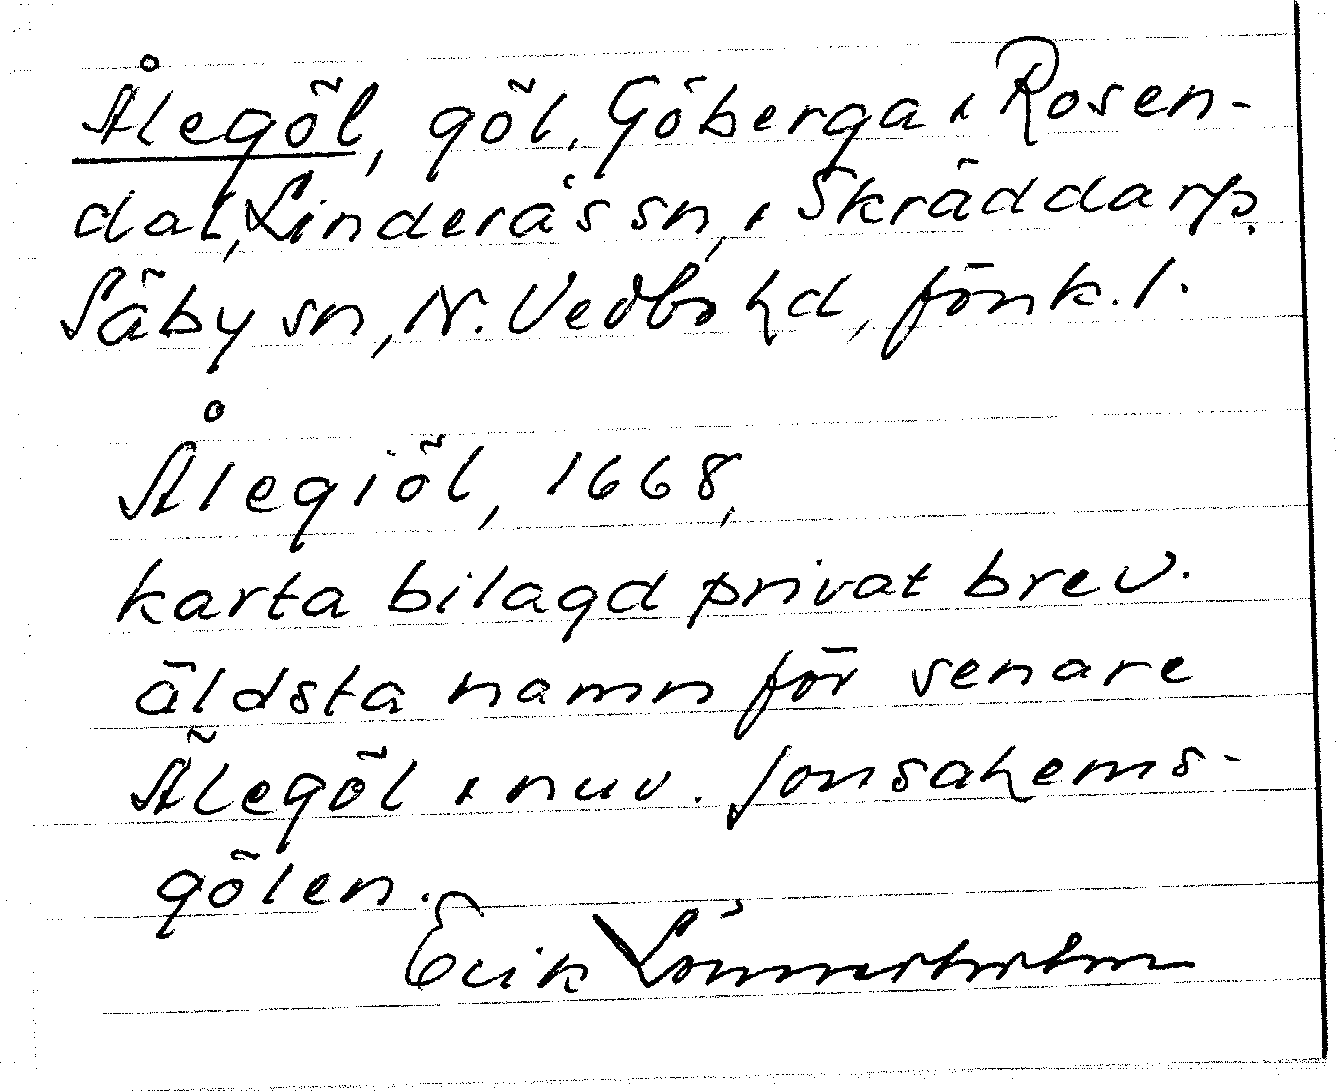 Ålegöl, göl, Göberga, Rosen-
dal, Linderås sn, Skräddarp,
Säby sn, N. Vedbo hd, Jönk. l.
Ålegiöl, 1668,
karta bilagd privat brev.
äldsta namn för senare
Älegöl, nuv. Jonsahems-
gölen.
Erik Lönnerholm